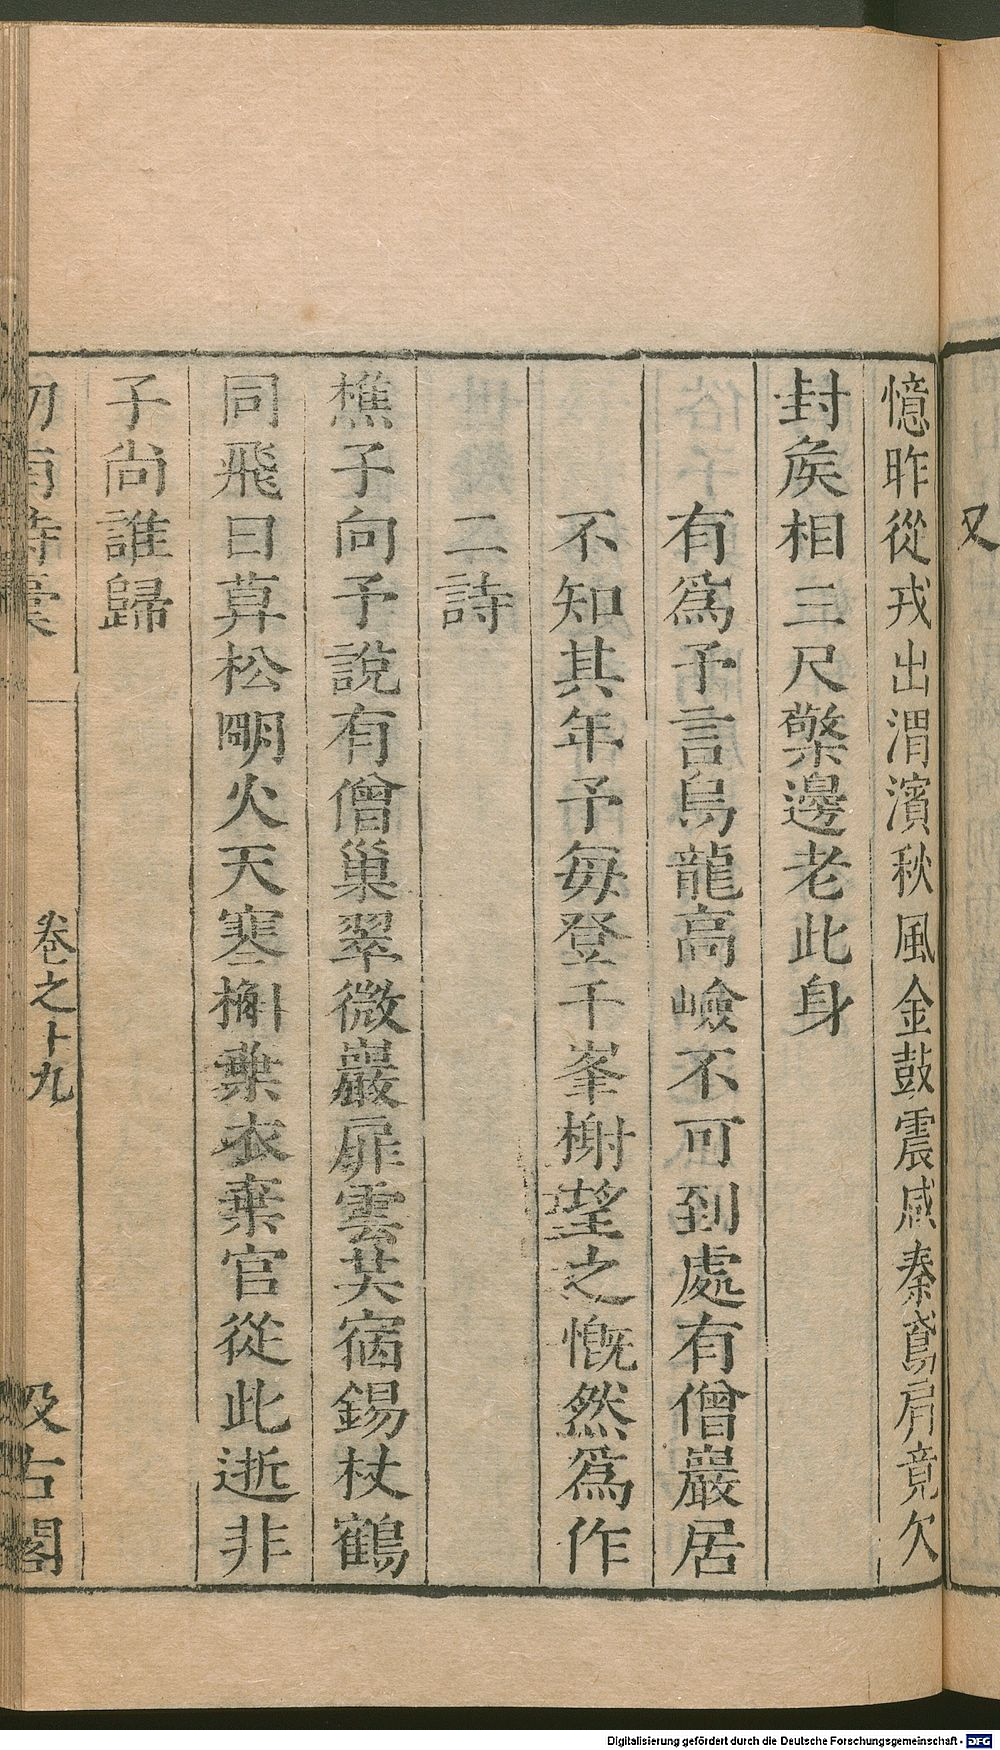 又
憶昨從戎出渭濱秋風金鼓震咸秦鳶肩竟欠
封矦相三尺檠邊老此身
有爲予言烏龍高嶮不可到處有僧巖居
不知其年予每登千峯榭望之慨然爲作
二詩
樵子向予說有僧巢翠微巖扉雲共宿錫杖鶴
同飛日莫松朙火天寒槲葉衣棄官從此逝非
子尚誰歸
卷之十九
汲古閣
Digitalisierung gefördert durch die Deutsche Forschungsgemeinschaft - DFG